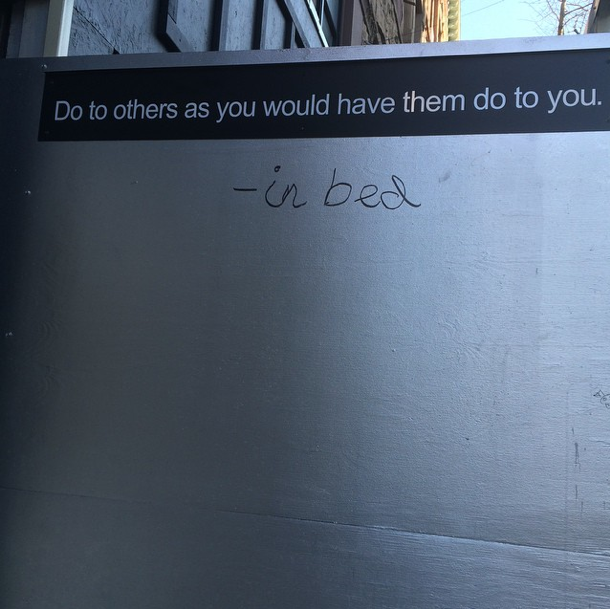 Do to others as you would have them do to you.
-in bed